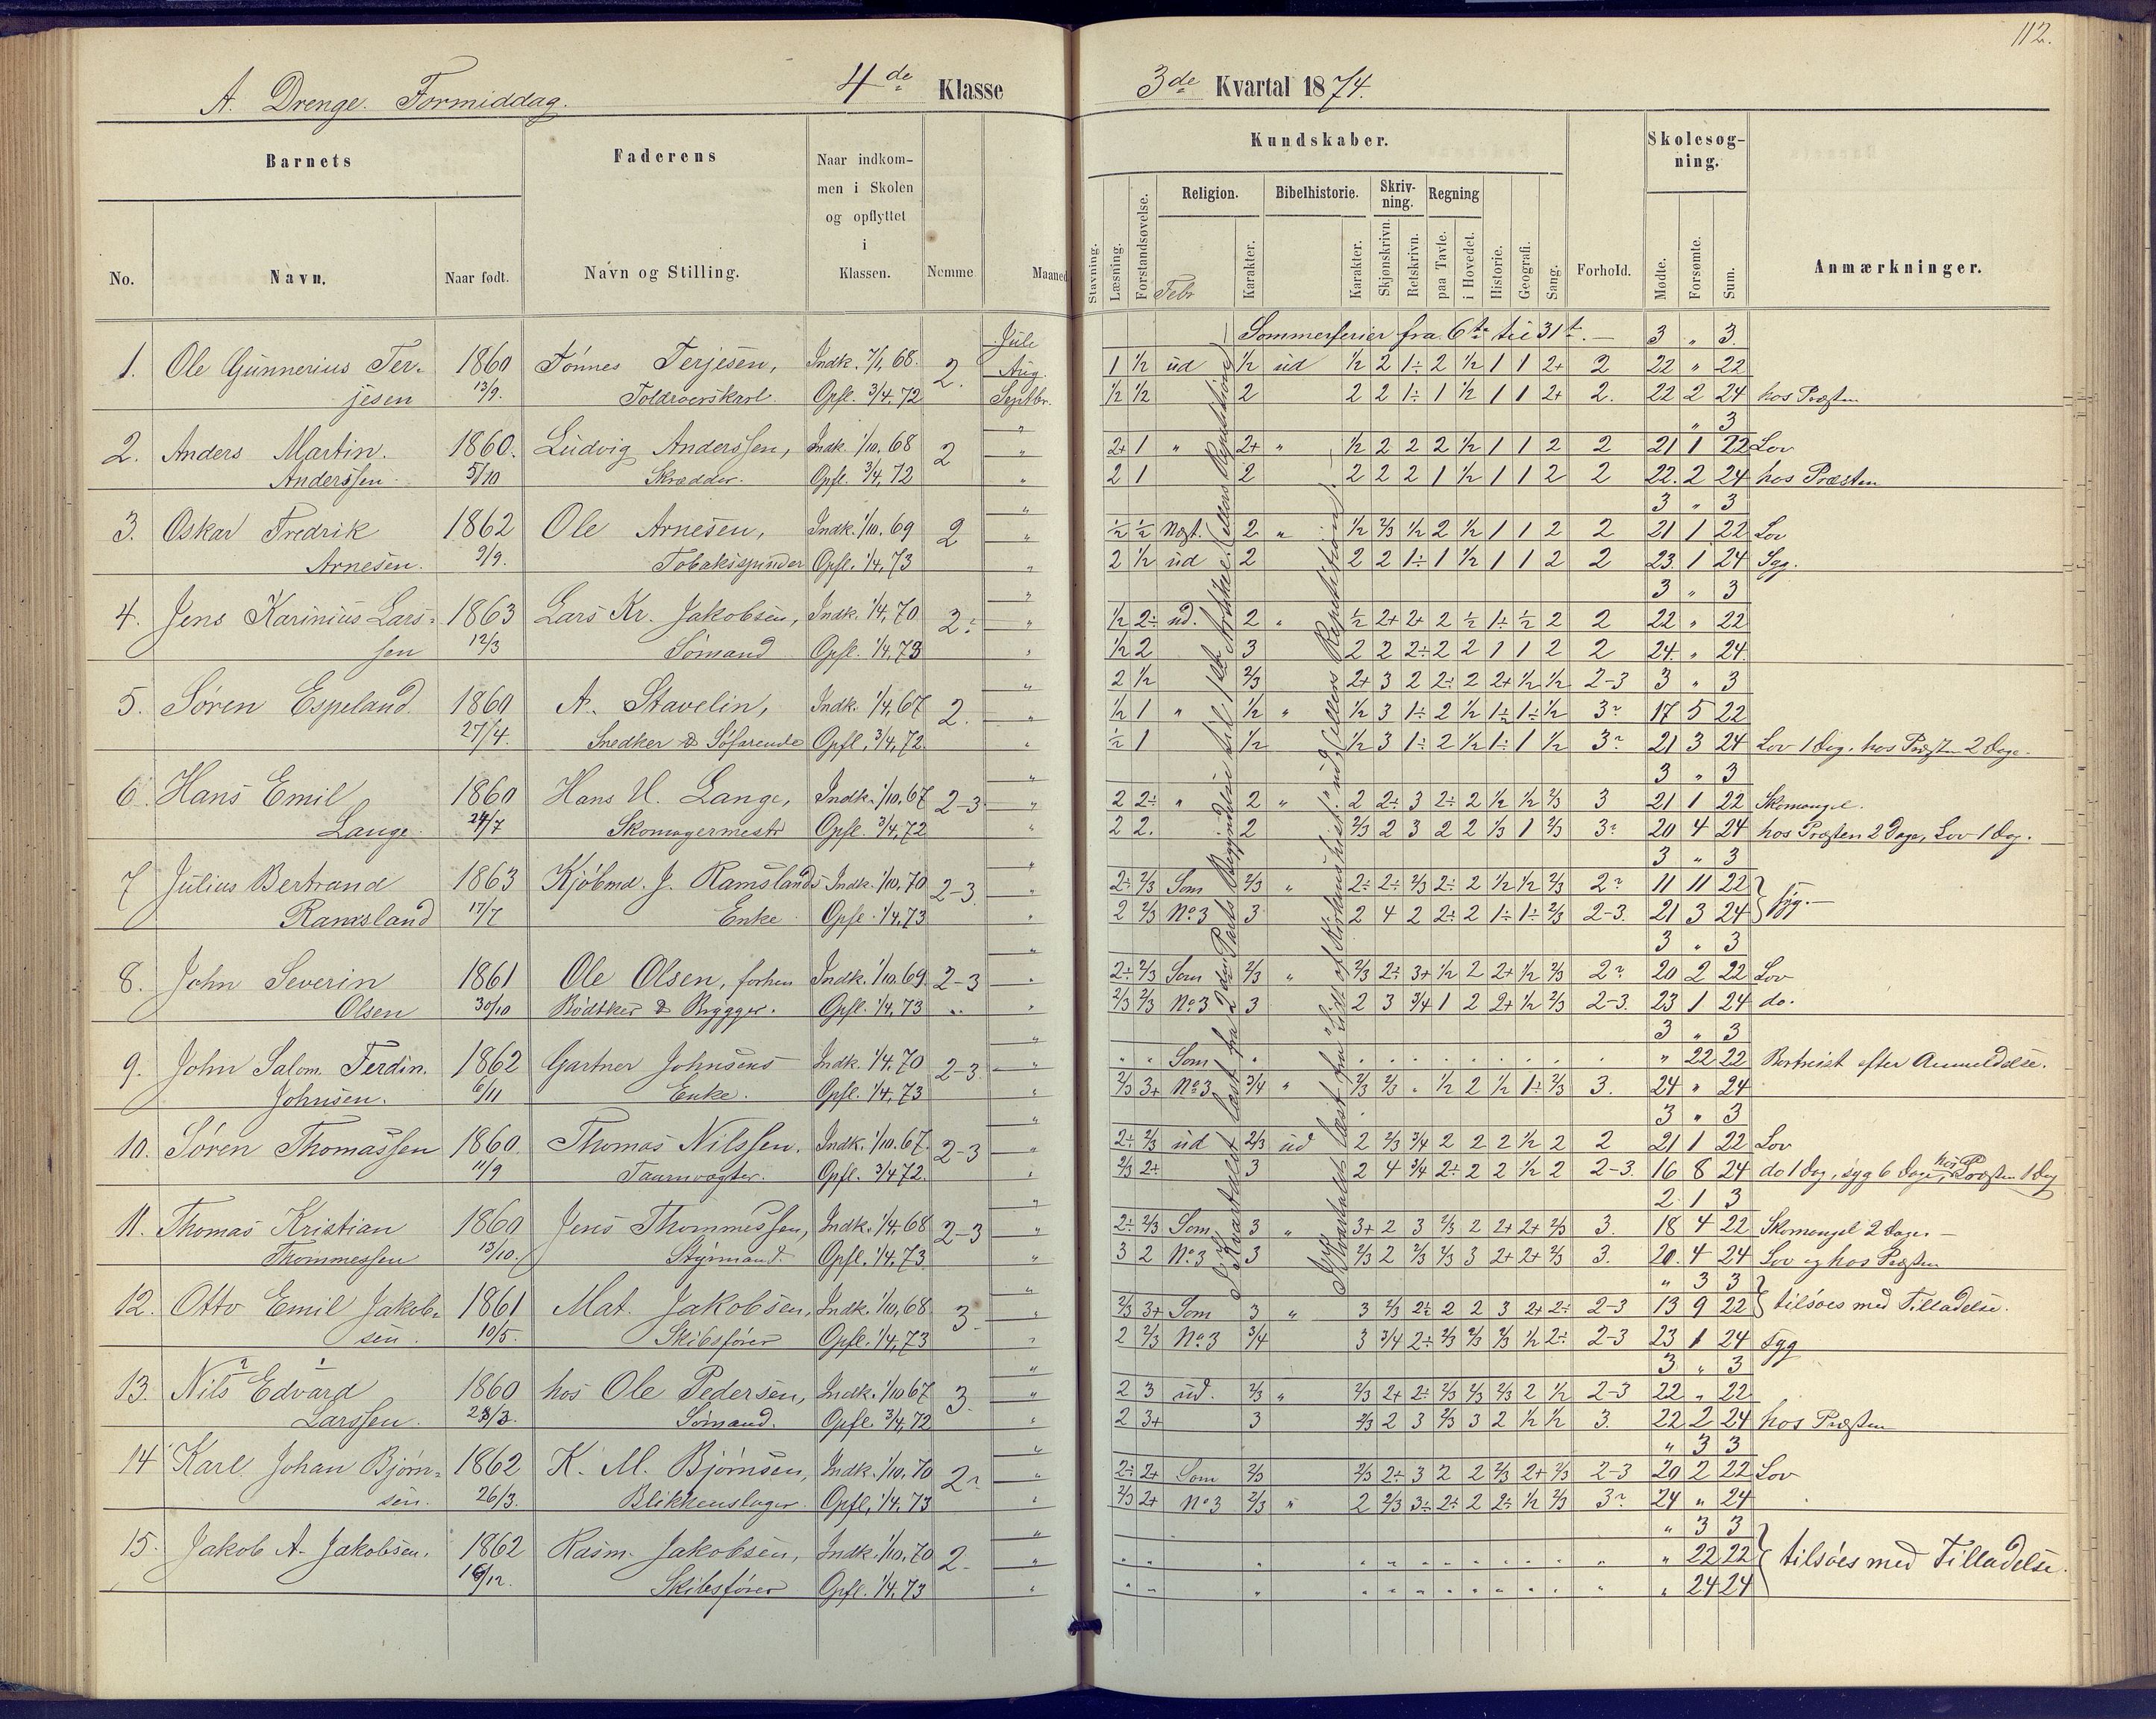 112.
A. Drenge. Formiddag.
4de Klasse
3de Kvartal 1874.
Barnets
Faderens
Naar indkommen i Skolen og opflyttet i Klassen.
Kundskaber.
Skolesøgning.
No.
Navn.
Naar født.
Navn og Stilling.
Nemme
Maaned
Stavning.
Læsning.
Forstandsøvelse.
Religion.
Febr
Karakter.
Bibelhistorie.
Karakter.
Skrivning.
Skjønskrivn.
Retskrivn.
Regning
paa Tavle.
i Hovedet.
Historie.
Geografi.
Sang.
Forhold.
Mødte.
Forsømte.
Sum.
Anmærkninger.
Juli Sommerferier fra 6te til 31t. 3 " 3.
1. Ole Gunnerius Ter- 1860 Tønnes Terjesen, Indk. 7/1, 68. 2. Aug. 1 1/2 ud 1/2 ud 1/2 2 1÷ 2 1/2 1 1 2+ 2 22 " 22
jesen 13/9. Toldroerskarl. Opfl. 3/4. 72 Septbr. 1/2 1/2 2 2 2 1÷ 1 1/2 1 1 2+ 2. 22 2 24 hos Præsten
" 3
2. Anders Martin. 1860. Ludvig Anderssen, Indk. 1/10. 68 2 " 2+ 1 " 2+ " 1/2 2 2 2 1/2 1 1 2 2 21 1 22 Lov
Anderssen. 5/10 Skrædder. Opfl. 3/4, 72 " 2 1 2 2 2 2 1 1/2 1 1 2 2 22. 2 24 hos Præsten
3 " 3
3. Oskar Fredrik 1862 Ole Arnesen, Indk. 1/10. 69 2 " 1/2 1/2 Nogt. 2 " 1/2 2/3 1/2 2 1/2 1 1 2 2 21 1 22 Lov
Arnesen. 9/9. Tobaksspinder Opfl. 1/4, 73 " 2 1/2 ud 2 2 2 1÷ 1 1/2 1 1 2 2 23. 1 24 Syg.
3 " 3
4. Jens Karinius Lars- 1863 Lars Kr. Jakobsen, Indk. 1/4, 70 2÷ " 1/2 2÷ ud. 2 " 1/2 2+ 2+ 2 1/2 1÷ 1/2 2 2 22 " 22
sen 12/3 Sømand Opfl. 1/4, 73 " 1/2 2 3 2 2 2÷ 2 2 1 1 2 2 24. " 24.
" 2 1/2 2/3 2+ 3 2 2÷ 2 2+ 1/2 1/2 2-3 3 " 3
5. Søren Espeland 1860 A. Stavelin, Indk. 1/4, 67 2. " 1/2 1 " 1/2 " 1/2 3 1÷ 2 1/2 1÷ 1÷ 1/2 3? 17 5 22
27/4. Snedker & Søfarende Opfl. 3/4, 72. " 1/2 1 1/2 1/2 3 1÷ 2 1/2 1÷ 1 1/2 3? 21 3 24 Lov 1 Dag. hos Præsten 2 Dage.
3 " 3
6. Hans Emil 1860 Hans U. Lange, Indk. 1/10, 67 2-3 " 2 2÷ " 2 " 2 2÷ 3 2÷ 2 1/2 1/2 2/3 3 21 1 22 Skomangel.
Lange. 24/7 Skomagermestr Opfl. 3/4, 72 " 2 2. 2 2/3 2 3 2 2 1/3 1 2/3 3? 20 4 24 hos Præsten 2 Dage, Lov 1 Dag.
3 " 3
7 Julius Bertrand 1863 Kjöbmd. J. Ramslands Indk. 1/10, 70 2-3. " 2÷ 2/3 Som 2/3 " 2÷ 2÷ 2/3 2÷ 2 1/2 1/2 2/3 2? 11 11 22
Ramsland 17/7 Enke Opfl. 1/4, 73 " 2 2/3 No 3 3 2 4 2 2÷ 2 1÷ 1÷ 2/3 2-3. 21 3 24 Syg.
3 " 3
8. John Severin 1861 Ole Olsen, forhen Indk. 1/10. 69. 2-3 " 2÷ 2/3 Som 2/3 " 2/3 2÷ 3+ 1/2 2 2+ 1/2 2/3 2? 20 2 22 Lov
Olsen 30/10 Bödtker & Brygger. Opfl. 1/4, 73 " 2/3 2/3 No 3 3 2 3 3/4 1 2 2+ 1/2 2/3 2-3. 23 1 24 do.
3 " 3
9. John Salom. Ferdin. 1862 Gartner Johnsens Indk. 1/4. 70 2-3. " Som " 22 22 Bortreist efter Anmeldelse.
Johnsen. 6/11 Enke. Opfl. 1/4, 73 " 2/3 3+ No 3 3/4 " 2/3 2/3 " 1/2 2 1/2 1÷ 2/3 3. 24 " 24
3 " 3
10. Søren Thomassen 1860. Thomas Nilssen. Indk. 1/10. 67. 2-3 " 2÷ 2/3 ud 2/3 ud 2 2/3 3/4 2 2 2 1/2 2 2 21 1 22 Lov
11/9 Taarnvægter. Opfl. 3/4 72. " 2/3 2÷ 3 2 4 3/4 2÷ 2 2 1/2 2 2-3. 16 8 24 do 1 Dag, syg 6 Dage, hos Præsten 1 Dag
2. 1 3
11. Thomas Kristian 1860 Jens Thommessen, Indk. 1/4, 68 2-3 " 2÷ 2/3 Som 3 " 3+ 2 3 2/3 2 2+ 2+ 2/3 3. 18 4 22 Skomangel 2 Dage.
Thommessen 13/10. Styrmand. Opfl. 1/4, 73. " 3 2 No 3 3 2/3 2 2/3 2/3 3 2+ 2+ 2/3 3. 20. 4 24 Lov og hos Præsten
" 3 3
12. Otto Emil Jakob- 1861 Mat. Jakobsen, Indk. 1/10, 68 3. " 2/3 3+ Som 3 " 3 2/3 2÷ 2 2 3 2+ 2÷ 2-3 13 9 22 tilsøes med Tilladelse.
sen. 10/5. Skibsfører Opfl. 1/4, 73 " 2 2/3 No 3 3/4 3 3/4 2÷ 2/3 2/3 2/3 1/2 2÷ 2-3 23 1 24 Syg
3 " 3
13. Nils Edvard 1860 hos Ole Pedersen, Indk. 1/10 67 3. " 2 3 ud. 2/3 " 2/3 2+ 2÷ 2/3 2/3 2/3 2 1/2 2-3 22 " 22
Larssen. 28/3. Sømand. Opfl. 3/4, 72 " 2 3+ 3 2/3 2 3 2/3 3 2 1/2 1/2 3. 22 2 24 hos Præsten
" 3 3
14 Karl Johan Bjørn- 1862 K. M. Bjørnsen, Indk. 1/10, 70 2? " 2÷ 2+ Som 2/3 2/3 2÷ 3 2 2 2/3 2+ 2/3 2-3 20 2 22 Lov
sen. 26/3. Blikkenslager. Opfl, 1/4, 73 " 2/3 2+ No 3 2/3 " 2 2/3 3÷ 2÷ 2 2÷ 1/2 2/3 3? 24 " 24
" 3 3
15. Jakob A. Jakobsen. 1862 Rasm. Jakobsen, Indk. 1/10, 70 2- " " 22 22 tilsøes med Tilladelse.
16/12. Skibsfører Opfl. 1/4, 73 " " 24 24
I Kvartalet læst fra 2den Parts Begyndelse til 1ste Artikel (ellers Repetition)
I Kvartalet læst fra Kirkens hist. ud, (ellers Repetition).